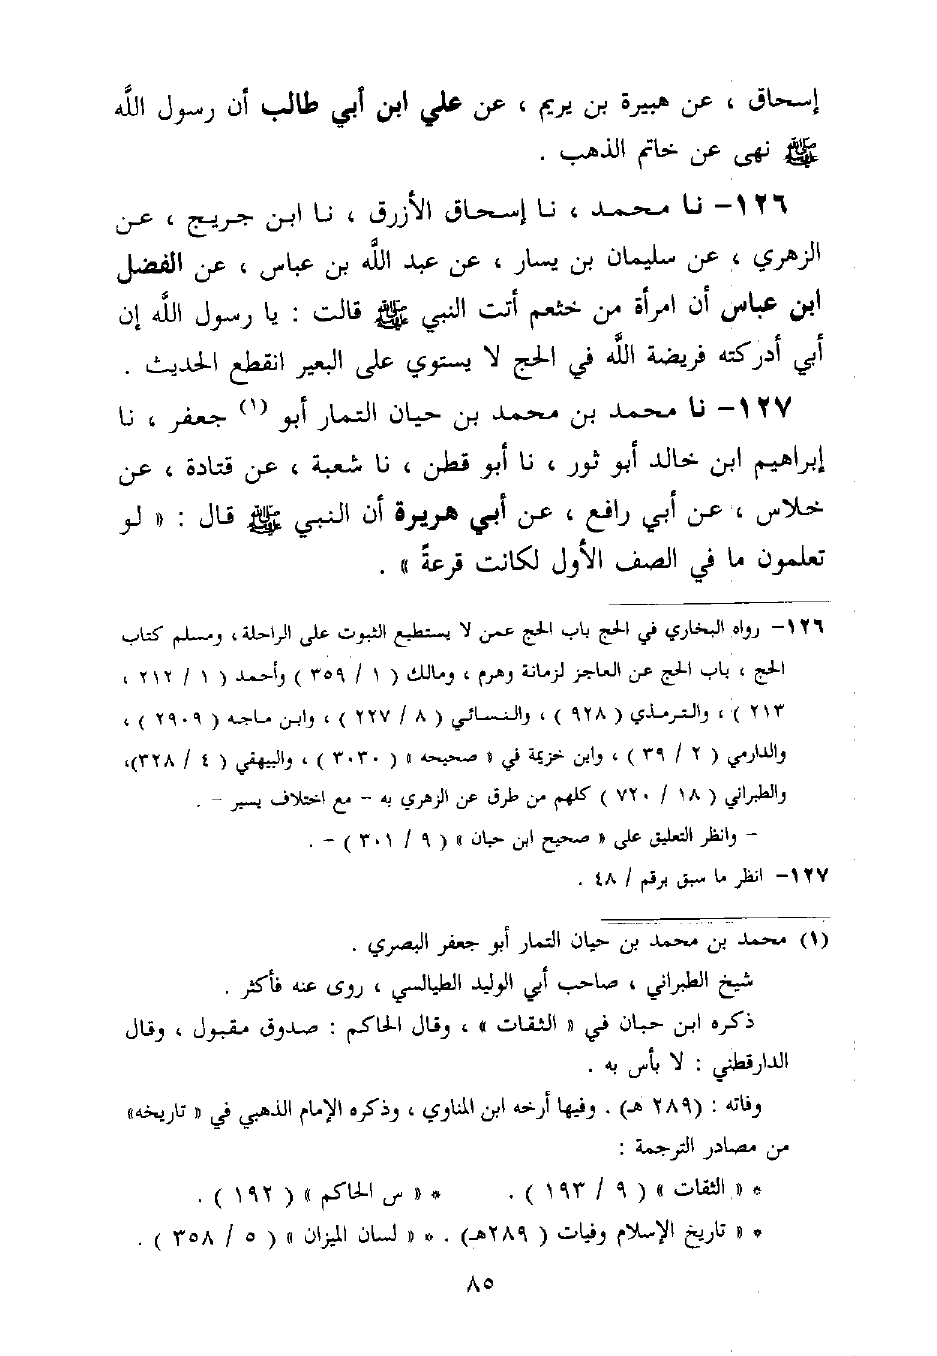 إسحاق ، عن هبيرة بن يريم ، عن علي ابن أبي طالب أن رسول اللَّه
ﷺ نهى عن خاتم الذهب .
١٢٦- نا محمد ، نا إسحاق الأزرق ، نا ابن جريج ، عن
الزهري ، عن سليمان بن يسار ، عن عبد اللَّه بن عباس ، عن الفضل
ابن عباس أن امرأة من خثعم أتت النبي ﷺ قالت : يا رسول اللَّه إن
أبي أدركته فريضة اللَّه في الحج لا يستوي على البعير انقطع الحديث .
١٢٧- نا محمد بن محمد بن حيان التمار أبو (١) جعفر ، نا
إبراهيم ابن خالد أبو ثور ، نا أبو قطن ، نا شعبة ، عن قتادة ، عن
خلاس ، عن أبي رافع ، عن أبي هريرة أن النبي ﷺ قال : « لو
تعلمون ما في الصف الأول لكانت قرعةً » .
١٢٦- رواه البخاري في الحج باب الحج عمن لا يستطيع الثبوت على الراحلة ، ومسلم كتاب
الحج ، باب الحج عن العاجز لزمانة وهرم ، ومالك ( ١ / ٣٥٩ ) وأحمد ( ١ / ٢١٢ ،
٢١٣ ) ، والترمذي ( ٩٢٨ ) ، والنسائي ( ٨ / ٢٢٧ ) ، وابن ماجه ( ٢٩٠٩ ) ،
والدارمي ( ٢ / ٣٩ ) ، وابن خزيمة في « صحيحه » ( ٣٠٣٠ ) ، والبيهقي ( ٤ / ٣٢٨ )،
والطبراني ( ١٨ / ٧٢٠ ) كلهم من طرق عن الزهري به - مع اختلاف يسير - .
- وانظر التعليق على « صحيح ابن حبان » ( ٩ / ٣٠١ ) - .
١٢٧- انظر ما سبق برقم / ٤٨ .
(١) محمد بن محمد بن حيان التمار أبو جعفر البصري .
شيخ الطبراني ، صاحب أبي الوليد الطيالسي ، روى عنه فأكثر .
ذكره ابن حبان في « الثقات » ، وقال الحاكم : صدوق مقبول ، وقال
الدارقطني : لا بأس به .
وفاته : (٢٨٩ هـ) . وفيها أرخه ابن المناوي ، وذكره الإمام الذهبي في « تاريخه»
من مصادر الترجمة :
* « الثقات » ( ٩ / ١٩٣ ) . * « س الحاكم » ( ١٩٢ ) .
* « تاريخ الإسلام وفيات ( ٢٨٩هـ) . * « لسان الميزان » ( ٥ / ٣٥٨ ) .
٨٥